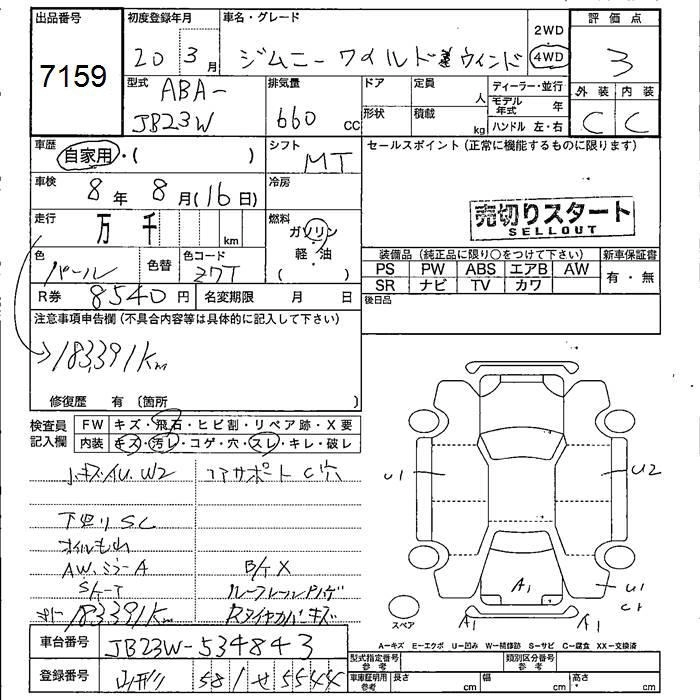 出品番号
7159
初度登録年月
20年 3月
車名・グレード
ジムニー ワイルドウィンド
2WD
4WD
評価点
3
外装 内装
C C
型式
ABA-
JB23W
排気量
660 cc
ドア
形状
定員 人
積載 kg
ディーラー・並行
モデル年式 年
ハンドル 左・右
車歴
自家用・( )
シフト
MT
セールスポイント (正常に機能するものに限ります)
車検
8年 8月(16日)
冷房
走行
万 千 km
燃料
ガソリン
・
軽油
売切りスタート
SELLOUT
色
パール
色替
色コード
Z7T
装備品 (純正品に限り○をつけて下さい)
新車保証書
PS PW ABS エアB AW
SR ナビ TV カワ
有・無
R券 8540円
名変期限 月 日
後日品
注意事項申告欄 (不具合内容等は具体的に記入して下さい)
→183,391km
修復歴 有 〔箇所 〕
検査員記入欄
FW キズ・飛石・ヒビ割・リペア跡・X要
内装 キズ・汚レ・コゲ・穴・スレ・キレ・破レ
小キズ・AU.W2
コアサポート C穴
下回りSC
オイルもれ
AW.ミラーA
183391km
ルーフレール
RタイヤカバーキズU1
U2
U1
C1
A1
A1
A1
スペア
A－キズ E－エクボ U－凹み W－補修跡 S－サビ C－腐食 XX－交換済
車台番号
JB23W-534843
型式指定番号 参考
類別区分番号 参考
登録番号
581 せ 5544
車庫証明用 参考
長さ cm 幅 cm 高さ cm